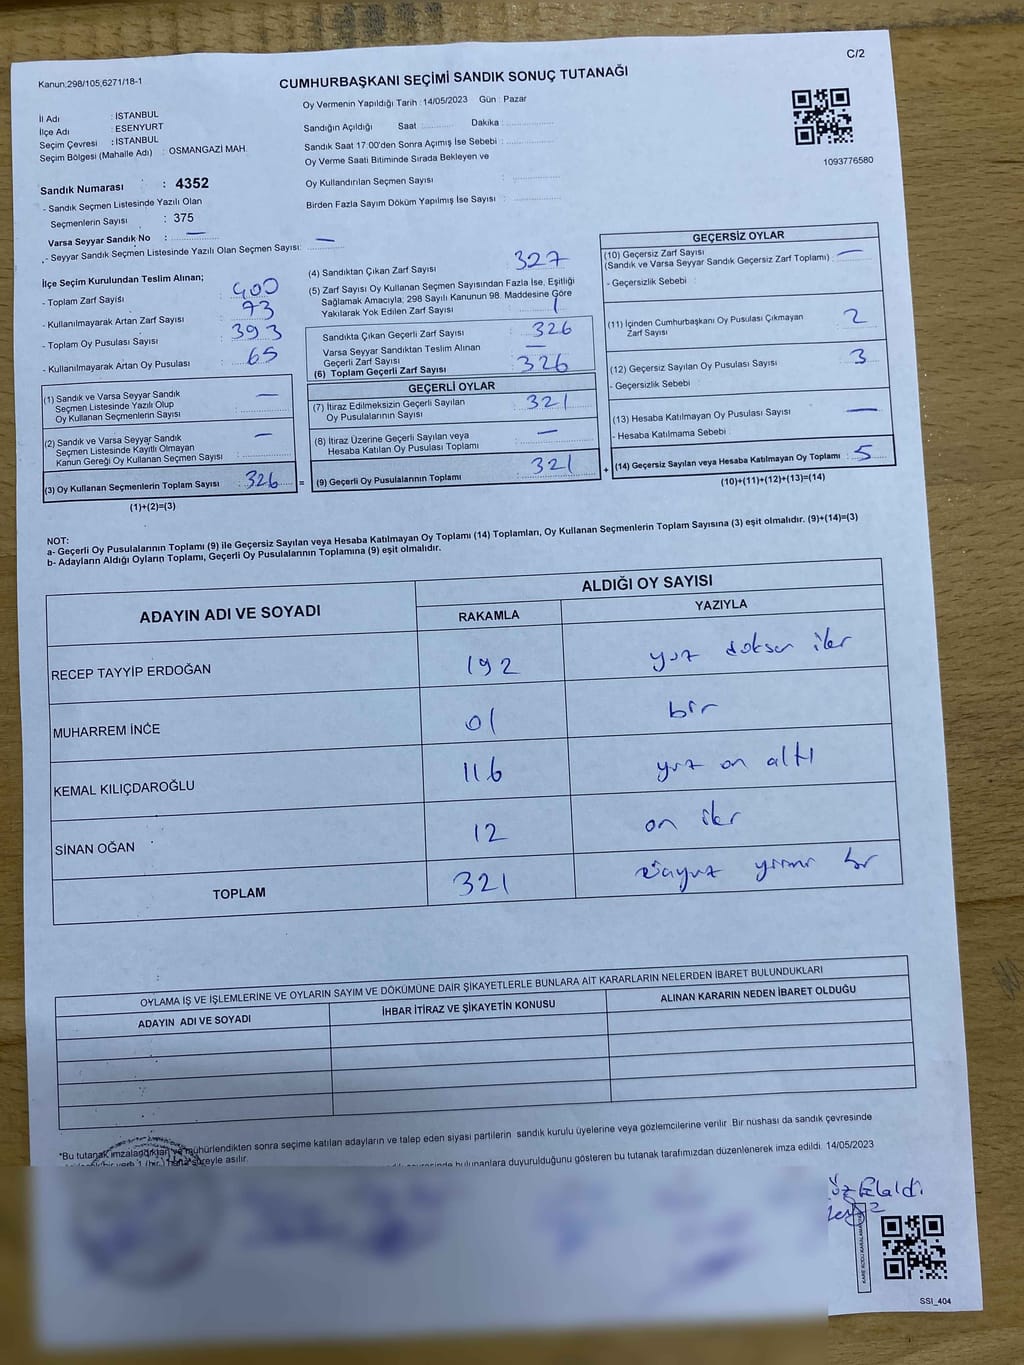 C/2
Kanun:298/105,6271/18-1
CUMHURBAŞKANI SEÇİMİ SANDIK SONUÇ TUTANAĞI
İl Adı : İSTANBUL
İlçe Adı : ESENYURT
Seçim Çevresi : İSTANBUL
Seçim Bölgesi (Mahalle Adı) : OSMANGAZİ MAH.
Oy Vermenin Yapıldığı Tarih : 14/05/2023 Gün : Pazar
Sandığın Açıldığı Saat : Dakika :
Sandık Saat 17:00'den Sonra Açımış İse Sebebi :
Oy Verme Saati Bitiminde Sırada Bekleyen ve
Oy Kullandırılan Seçmen Sayısı :
Birden Fazla Sayım Döküm Yapılmış İse Sayısı :
1093776580
Sandık Numarası : 4352
- Sandık Seçmen Listesinde Yazılı Olan
Seçmenlerin Sayısı : 375
Varsa Seyyar Sandık No : —
- Seyyar Sandık Seçmen Listesinde Yazılı Olan Seçmen Sayısı: —
İlçe Seçim Kurulundan Teslim Alınan;
- Toplam Zarf Sayısı : 400
- Kullanılmayarak Artan Zarf Sayısı : 73
- Toplam Oy Pusulası Sayısı : 393
- Kullanılmayarak Artan Oy Pusulası : 65
(1) Sandık ve Varsa Seyyar Sandık
Seçmen Listesinde Yazılı Olup
Oy Kullanan Seçmenlerin Sayısı : —
(2) Sandık ve Varsa Seyyar Sandık
Seçmen Listesinde Kayıtlı Olmayan
Kanun Gereği Oy Kullanan Seçmen Sayısı : —
(3) Oy Kullanan Seçmenlerin Toplam Sayısı : 326 =
(1)+(2)=(3)
(4) Sandıktan Çıkan Zarf Sayısı : 327
(5) Zarf Sayısı Oy Kullanan Seçmen Sayısından Fazla İse, Eşitliği
Sağlamak Amacıyla; 298 Sayılı Kanunun 98. Maddesine Göre
Yakılarak Yok Edilen Zarf Sayısı : 1
Sandıkta Çıkan Geçerli Zarf Sayısı : 326
Varsa Seyyar Sandıktan Teslim Alınan
Geçerli Zarf Sayısı : —
(6) Toplam Geçerli Zarf Sayısı : 326
GEÇERLİ OYLAR
(7) İtiraz Edilmeksizin Geçerli Sayılan
Oy Pusulalarının Sayısı : 321
(8) İtiraz Üzerine Geçerli Sayılan veya
Hesaba Katılan Oy Pusulası Toplamı : —
(9) Geçerli Oy Pusulalarının Toplamı : 321 +
GEÇERSİZ OYLAR
(10) Geçersiz Zarf Sayısı
(Sandık ve Varsa Seyyar Sandık Geçersiz Zarf Toplamı) : —
- Geçersizlik Sebebi :
(11) İçinden Cumhurbaşkanı Oy Pusulası Çıkmayan
Zarf Sayısı : 2
(12) Geçersiz Sayılan Oy Pusulası Sayısı : 3
- Geçersizlik Sebebi :
(13) Hesaba Katılmayan Oy Pusulası Sayısı : —
- Hesaba Katılmama Sebebi :
(14) Geçersiz Sayılan veya Hesaba Katılmayan Oy Toplamı : 5
(10)+(11)+(12)+(13)=(14)
NOT:
a- Geçerli Oy Pusulalarının Toplamı (9) ile Geçersiz Sayılan veya Hesaba Katılmayan Oy Toplamı (14) Toplamları, Oy Kullanan Seçmenlerin Toplam Sayısına (3) eşit olmalıdır. (9)+(14)=(3)
b- Adayların Aldığı Oyların Toplamı, Geçerli Oy Pusulalarının Toplamına (9) eşit olmalıdır.
ADAYIN ADI VE SOYADI
ALDIĞI OY SAYISI
RAKAMLA YAZIYLA
RECEP TAYYİP ERDOĞAN 192 yuz doksan iki
MUHARREM İNCE 01 bir
KEMAL KILIÇDAROĞLU 116 yuz on altı
SİNAN OĞAN 12 on iki
TOPLAM 321 üçyuz yirmi bir
OYLAMA İŞ VE İŞLEMLERİNE VE OYLARIN SAYIM VE DÖKÜMÜNE DAİR ŞİKAYETLERLE BUNLARA AİT KARARLARIN NELERDEN İBARET BULUNDUKLARI
ADAYIN ADI VE SOYADI İHBAR İTİRAZ VE ŞİKAYETİN KONUSU ALINAN KARARIN NEDEN İBARET OLDUĞU
*Bu tutanak imzalandıktan ve mühürlendikten sonra seçime katılan adayların ve talep eden siyasi partilerin sandık kurulu üyelerine veya gözlemcilerine verilir. Bir nüshası da sandık çevresinde
süreyle asılır.
bulunanlara duyurulduğunu gösteren bu tutanak tarafımızdan düzenlenerek imza edildi. 14/05/2023
SSI_404